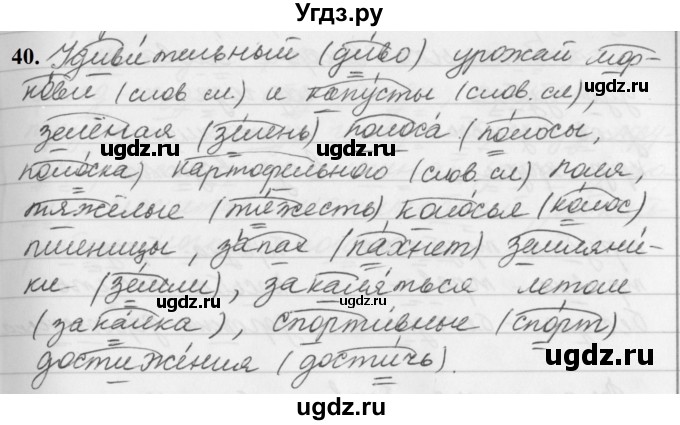 Угдз.ру
40. Удивительный (диво) урожай мор-
кови (слов сл) и капусты (слов. сл),
зелёная (зелень) полоса (полосы,
полоска) картофельного (слов. сл) поля,
тяжёлые (тяжесть) колосья (колос)
пшеницы, запах (пахнет) земляни-
ки (земли), закаляться летом
(закалка), спортивные (спорт)
достижения (достичь).
ugdz.ru
ugdz.ru
ugdz.ru
ugdz.ru
ugdz.ru
ugdz.ru
ugdz.ru
ugdz.ru
ugdz.ru
ugdz.ru
ugdz.ru